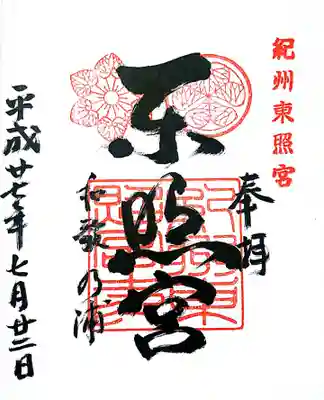 紀州東照宮
奉拝
東照宮
和歌乃浦
平成廿七年七月廿二日